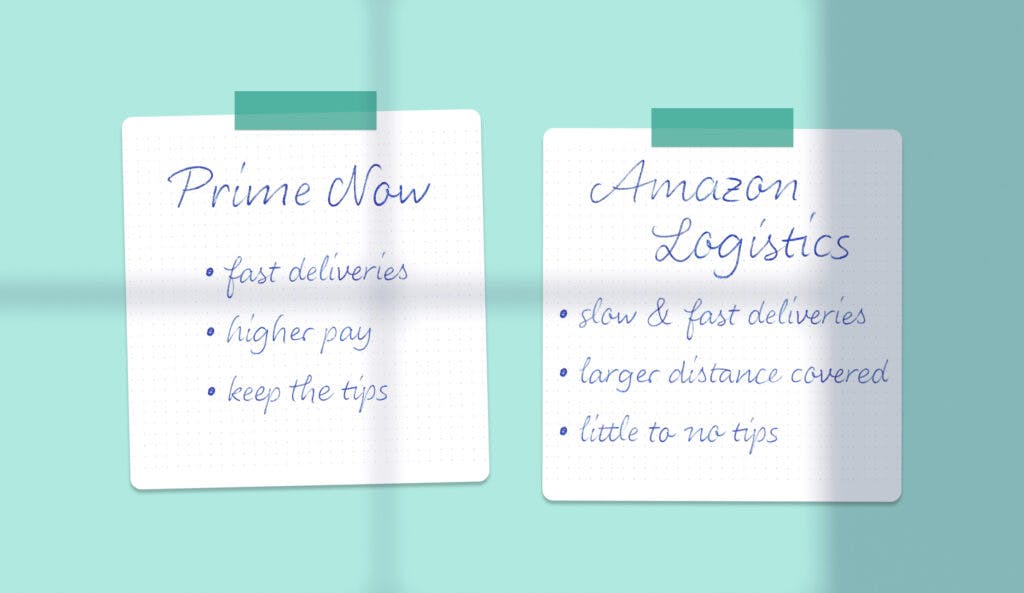 Prime Now
• fast deliveries
• higher pay
• keep the tips
Amazon
Logistics
• slow & fast deliveries
• larger distance covered
• little to no tips